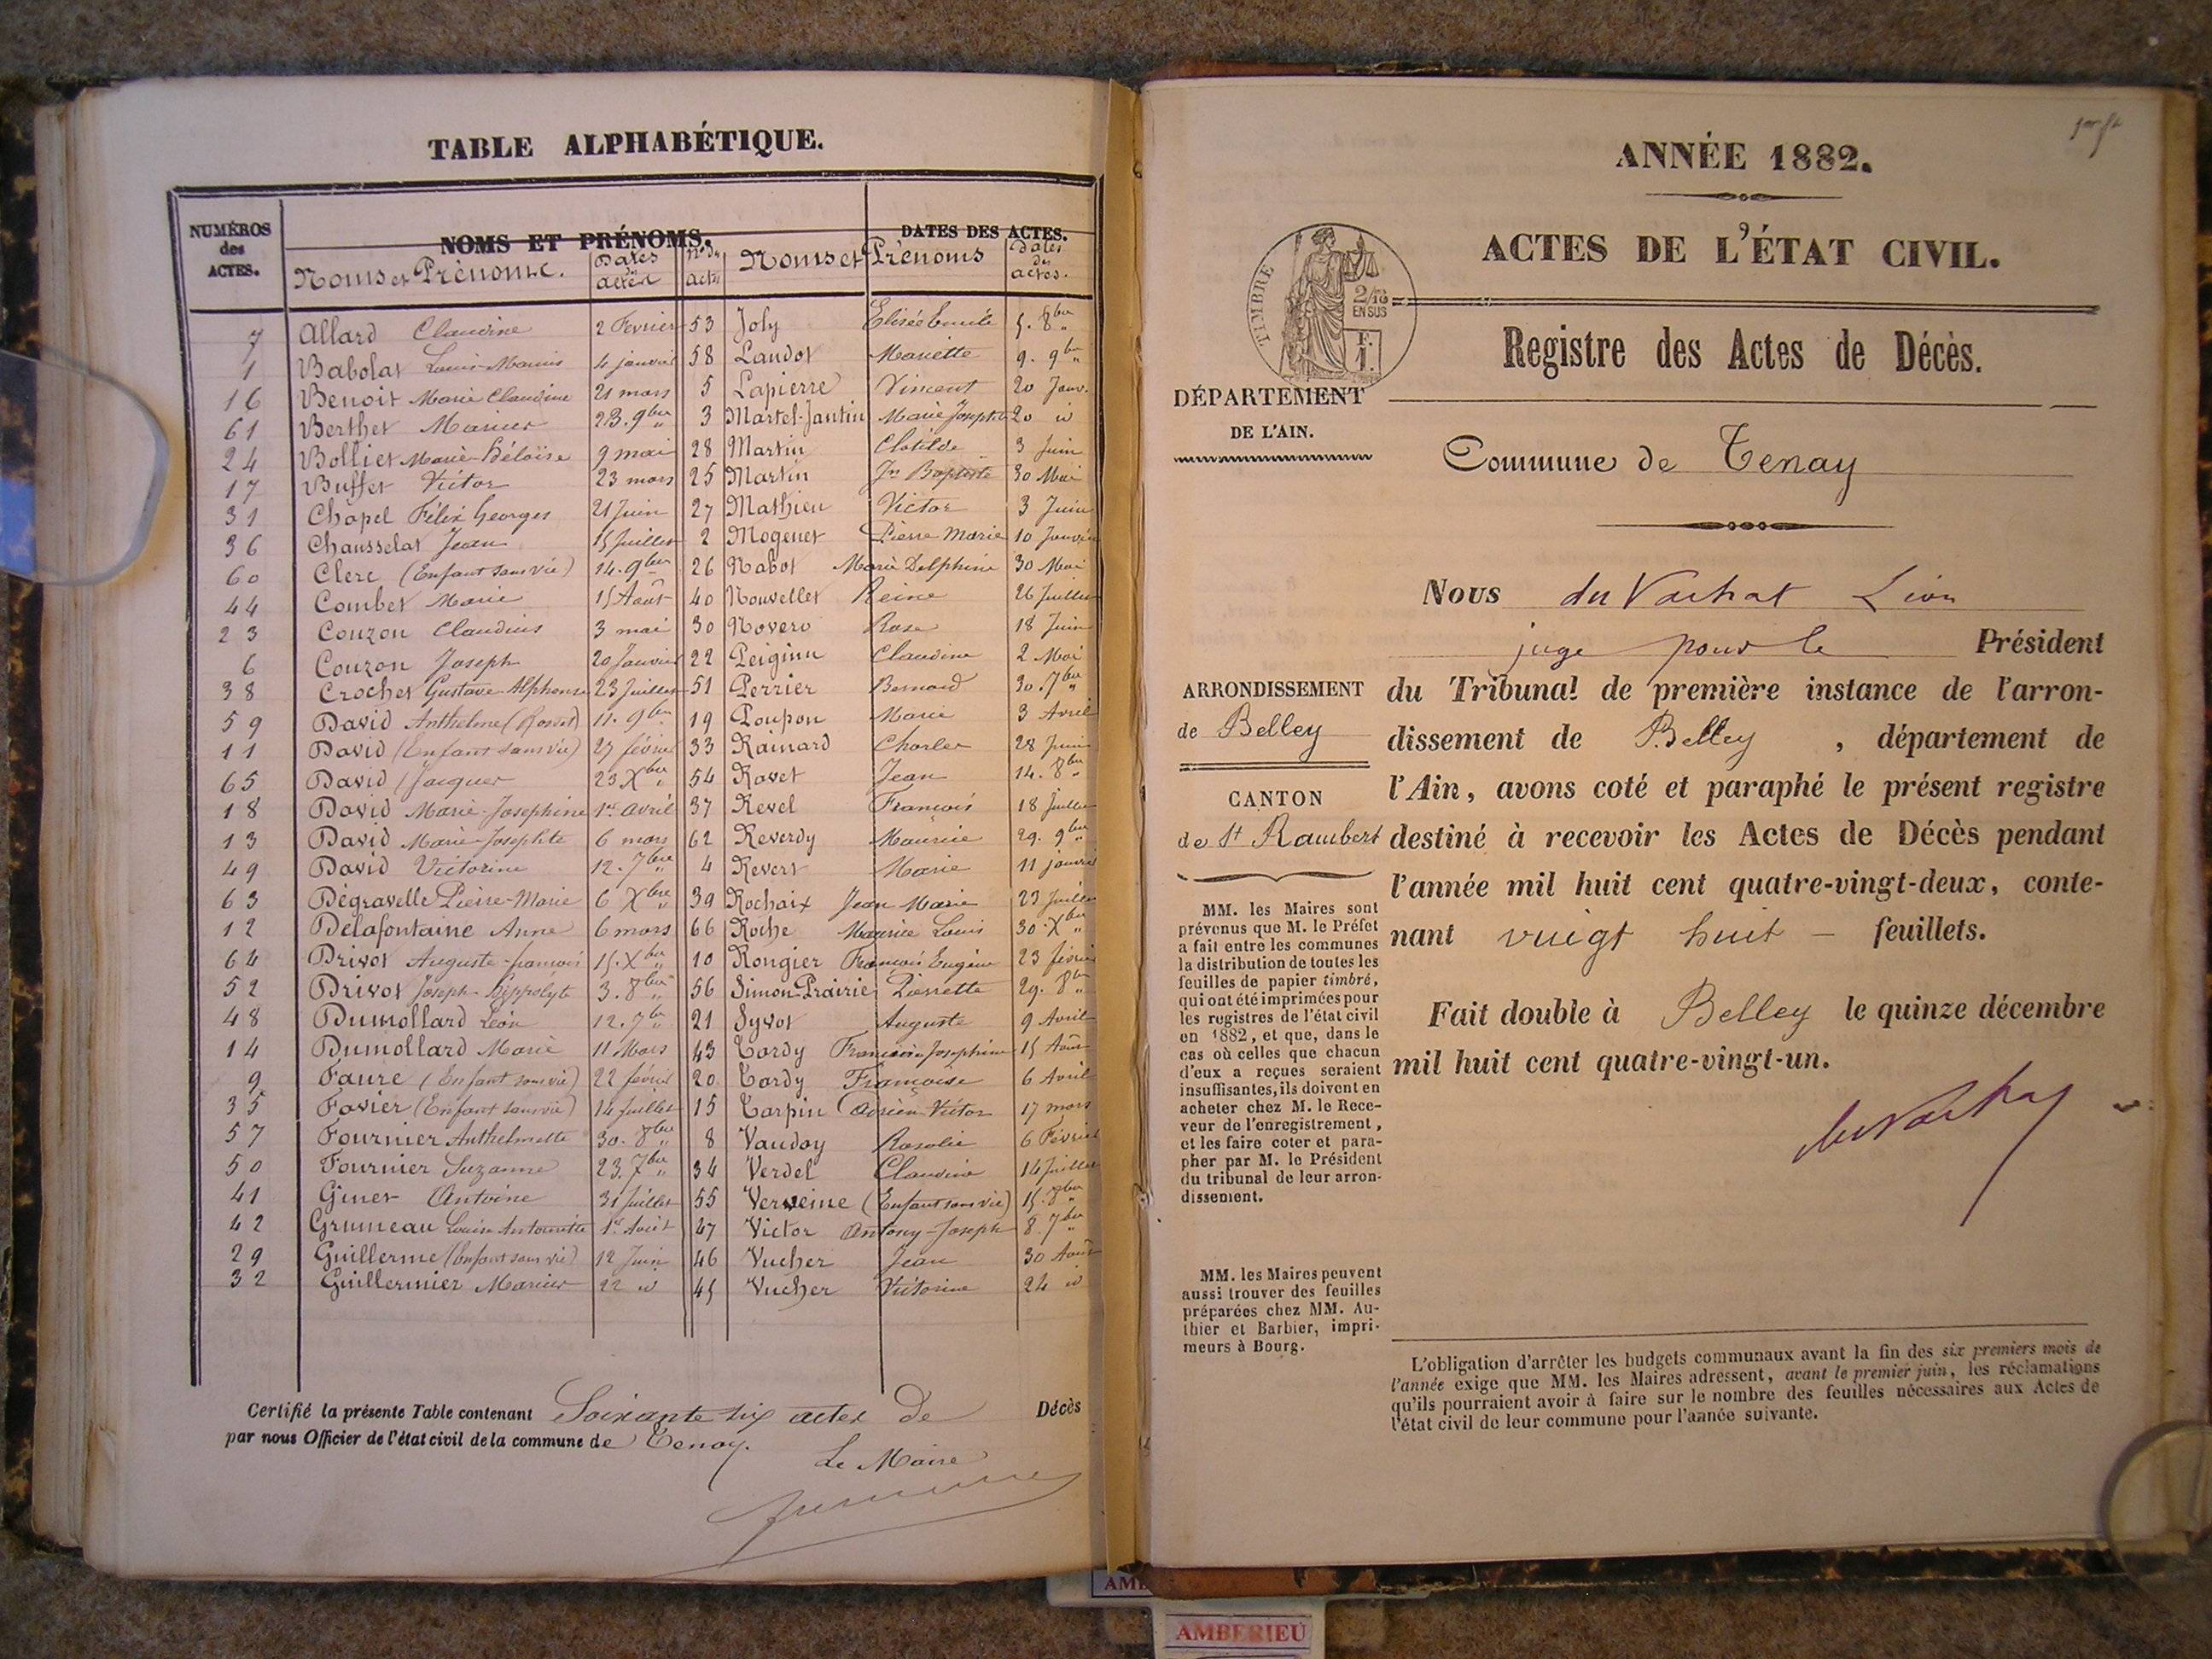 TABLE ALPHABÉTIQUE.
NUMÉROS des ACTES. NOMS ET PRÉNOMS. DATES DES ACTES.
Noms et Prénoms. Dates des actes Nos des actes Noms et Prénoms Dates des actes.
7 Allard Claudine 2 Février 53 Joly Elisée Emile 5. 8bre
1 Babolat Louis Marius 4 janvier 58 Landot Mariette 9. 9bre
16 Benoit Marie Claudine 21 mars 5 Lapierre Vincent 20 Janv.
61 Berthet Marius 23. 9bre 3 Martel-Jantin Marie Josephte 20 id
24 Bolliet Marie-Héloïse 9 mai 28 Martin Clotilde 3 Juin
17 Buffet Victor 23 mars 25 Martin Jn Baptiste 30 Mai
31 Chapel Félix Georges 21 Juin 27 Mathieu Victor 3 Juin
36 Chausselat Jean 15 Juillet 2 Mogenet Pierre Marie 10 Janvier
60 Clerc (Enfant sans vie) 14. 9bre 26 Nabot Marie Delphine 30 Mai
44 Combet Marie 15 Août 40 Nouvellet Reine 26 Juillet
23 Couzon Claudius 3 mai 30 Novero Rose 18 Juin
6 Couzon Joseph 20 Janvier 22 Peiginu Claudine 2 Mai
38 Crochet Gustave Alphonse 23 Juillet 51 Perrier Bernard 30. 7bre
59 David Anthelme 11. 9bre 19 Poupon Marie 3 Avril
11 David (Enfant sans vie) 27 février 33 Rainard Charles 28 Juin
65 David Jacques 23 Xbre 54 Ravet Jean 14. 8bre
18 David Marie-Josephine 1er avril 37 Revel François 18 Juillet
13 David Marie-Josephte 6 mars 62 Reverdy Maurice 29. 9bre
49 David Victorine 12. 7bre 4 Revert Marie 11 janvier
63 Dégravelle Pierre-Marie 6 Xbre 39 Rochaix Jean Marie 23 Juillet
12 Délafontaine Anne 6 mars 66 Roche Maurice Louis 30. Xbre
64 Drivot Auguste-françois 15. Xbre 10 Rongier François Eugène 23 février
52 Drivot Joseph-Hippolyte 3. 8bre 56 Simon-Prairie Pierrette 29. 8bre
48 Dumollard Léon 12. 7bre 21 Syvot Auguste 9 Avril
14 Dumollard Marie 11 Mars 43 Tardy Françoise Josephine 15 Août
9 Faure (Enfant sans vie) 22 février 20 Tardy Françoise 6 Avril
35 Favier (Enfant sans vie) 14 Juillet 15 Tarpin Adrien Victor 17 mars
57 Fournier Anthelmette 30. 8bre 8 Vauday Rosalie 6 Février
50 Fournier Suzanne 23. 7bre 34 Verdel Claudine 14 Juillet
41 Ginet Antoine 31 Juillet 55 Verveine (Enfant sans vie) 15. 8bre
42 Grumeau Louise Antoinette 1er Août 47 Victor Antony-Joseph 8. 7bre
29 Guillerme (Enfant sans vie) 12 Juin 46 Vucher Jean 30 Août
32 Guillermier Marius 22 id 45 Vucher Victorine 24 id
Certifié la présente Table contenant Soixante six actes de Décès
par nous Officier de l'état civil de la commune de Tenay.
Le Maire
ANNÉE 1882.
ACTES DE L'ÉTAT CIVIL.
TIMBRE
2/10 EN SUS
F. 1.
Registre des Actes de Décès.
DÉPARTEMENT
DE L'AIN.
Commune de Tenay
Nous du Vachat Léon
juge pour le Président
ARRONDISSEMENT
de Belley
du Tribunal de première instance de l'arron-
dissement de Belley, département de
l'Ain, avons coté et paraphé le présent registre
destiné à recevoir les Actes de Décès pendant
l'année mil huit cent quatre-vingt-deux, conte-
nant vingt huit – feuillets.
Fait double à Belley le quinze décembre
mil huit cent quatre-vingt-un.
du Vachat
CANTON
de St Rambert
MM. les Maires sont
prévenus que M. le Préfet
a fait entre les communes
la distribution de toutes les
feuilles de papier timbré,
qui ont été imprimées pour
les registres de l'état civil
en 1882, et que, dans le
cas où celles que chacun
d'eux a reçues seraient
insuffisantes, ils doivent en
acheter chez M. le Rece-
veur de l'enregistrement,
et les faire coter et para-
pher par M. le Président
du tribunal de leur arron-
dissement.
MM. les Maires peuvent
aussi trouver des feuilles
préparées chez MM. Au-
thier et Barbier, impri-
meurs à Bourg.
L'obligation d'arrêter les budgets communaux avant la fin des six premiers mois de
l'année exige que MM. les Maires adressent, avant le premier juin, les réclamations
qu'ils pourraient avoir à faire sur le nombre des feuilles nécessaires aux Actes de
l'état civil de leur commune pour l'année suivante.
AMBERIEU